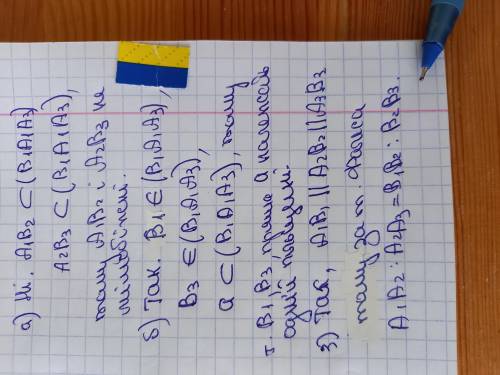 а) Ні. A₁B₂ ⊂ (B₁A₁A₃)
A₂B₃ ⊂ (B₁A₁A₃),
тому A₁B₂ і A₂B₃ не
мимобіжні.
б) Так. B₁ ∈ (B₁A₁A₃),
B₃ ∈ (B₁A₁A₃),
a ⊂ (B₁A₁A₃), тому
т. B₁, B₃ пряма a належать
одній площині.
3) Так, A₁B₁ || A₂B₂ || A₃B₃
тому за т. Фалеса
A₁A₂ : A₂A₃ = B₁B₂ : B₂B₃.